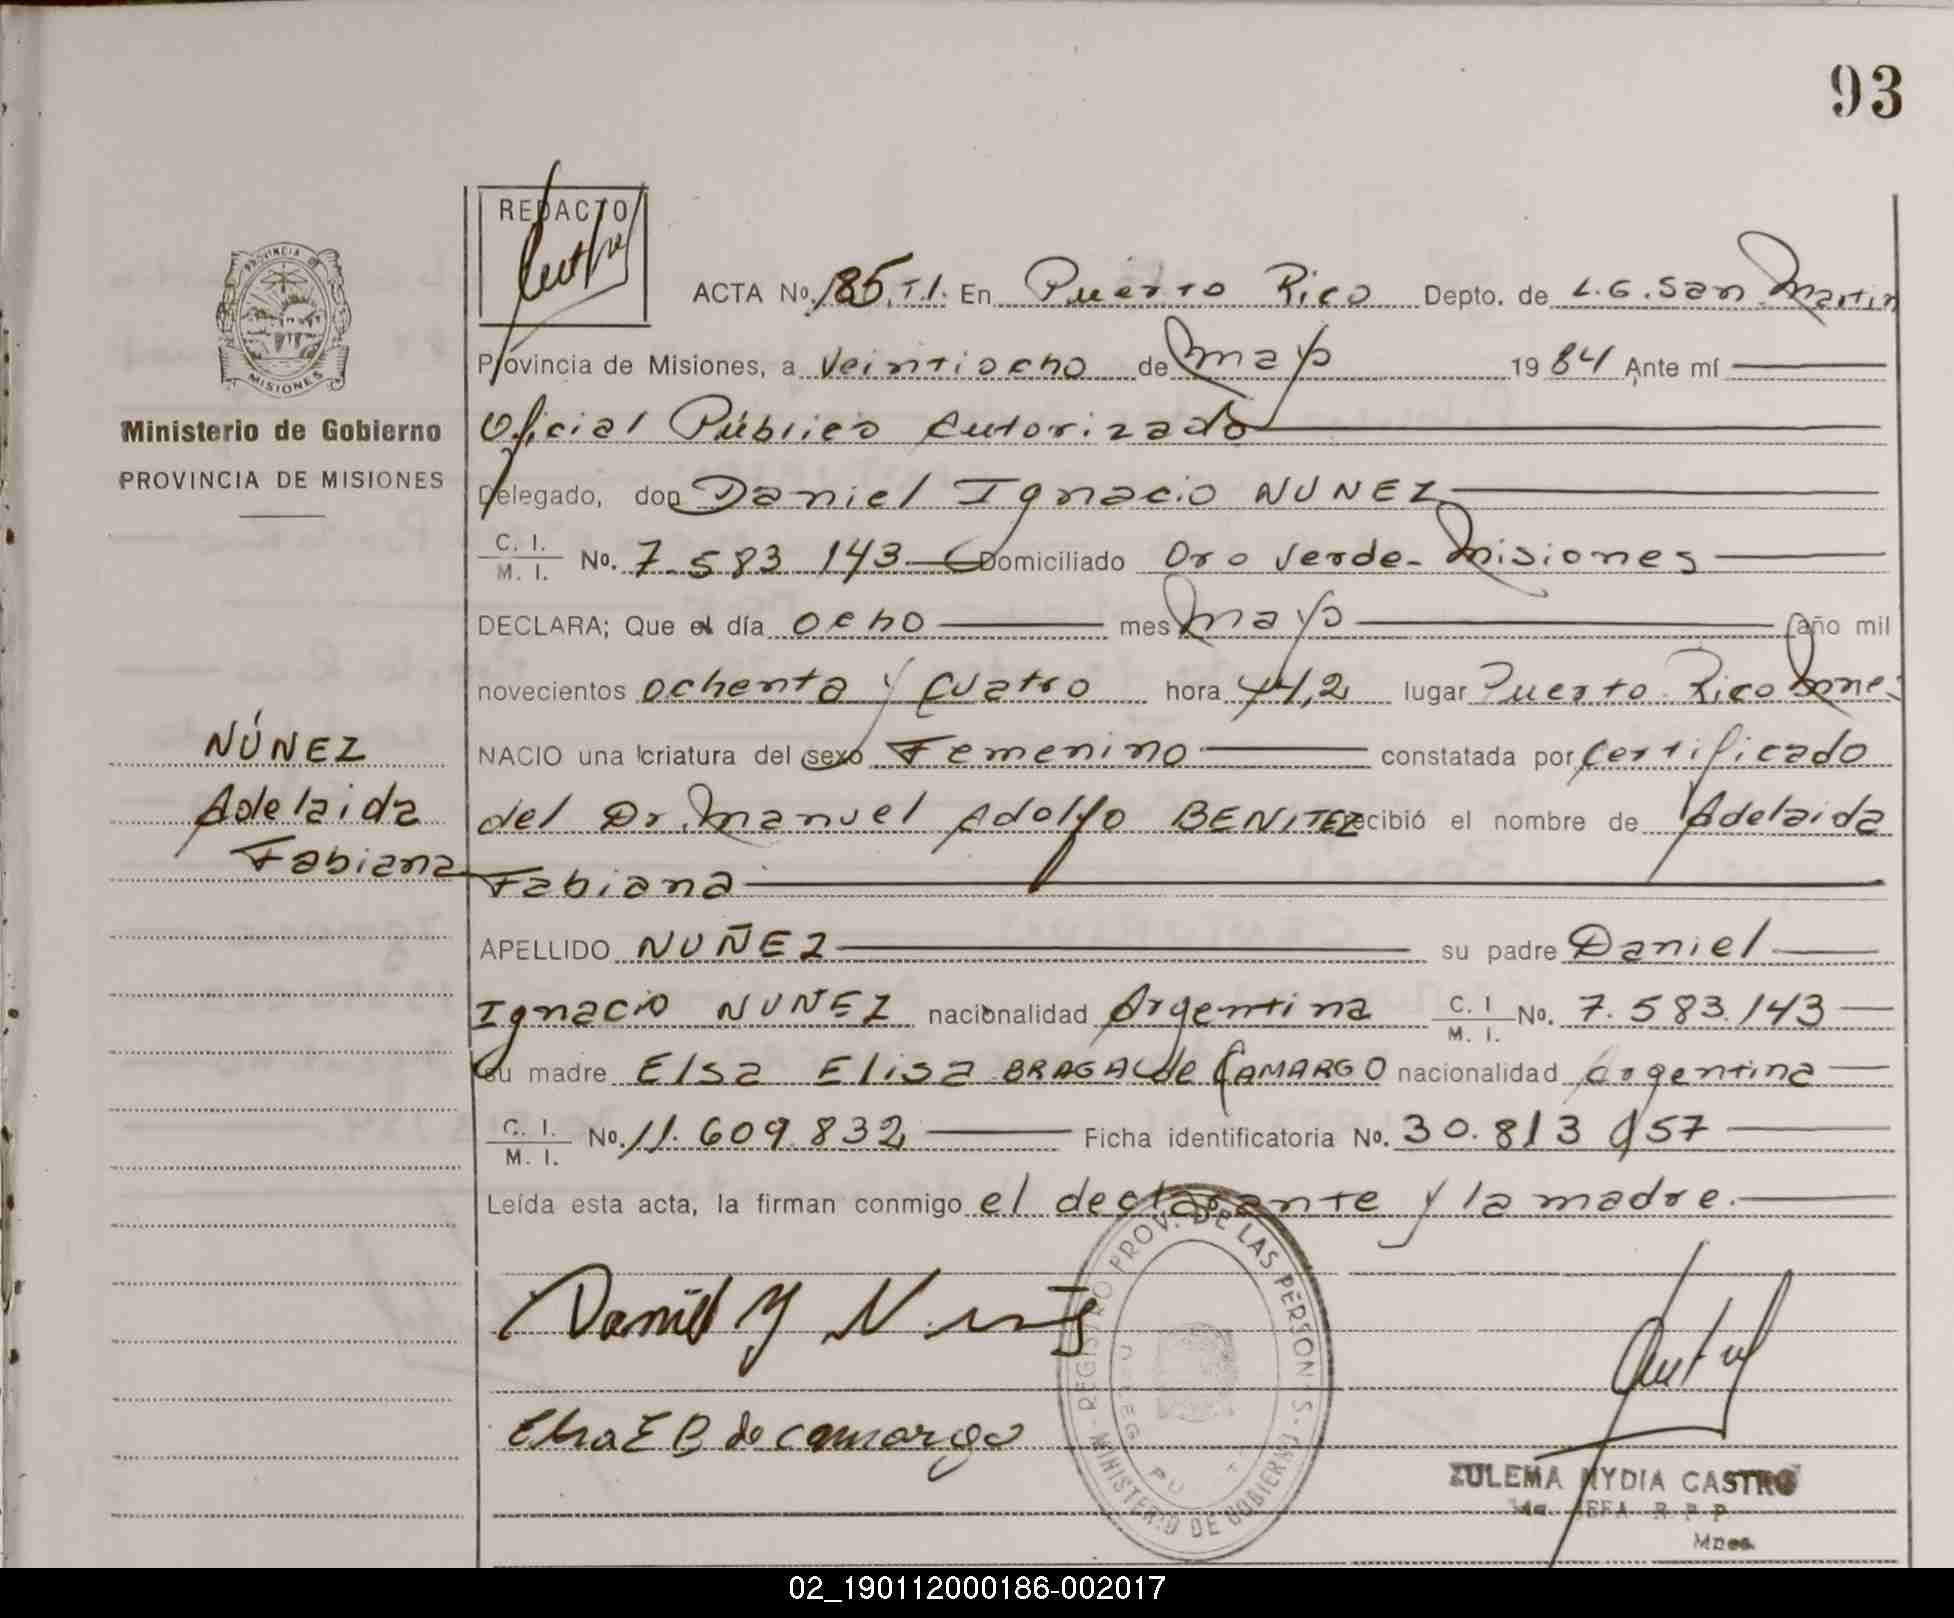 93
REDACTO
ACTA No. 185. T.I. En Puerto Rico Depto. de L.G. San Martin
Provincia de Misiones, a veintiocho de mayo 1984 Ante mí
Oficial Público Autorizado
Delegado, don Daniel Ignacio NUNEZ
C. I. / M. I. No. 7.583.143 Domiciliado Oro Verde - Misiones
DECLARA; Que el día ocho mes mayo año mil
novecientos ochenta y cuatro hora lugar Puerto Rico Mnes.
NACIO una criatura del sexo Femenino constatada por certificado
del Dr. Manuel Adolfo BENITEZ recibió el nombre de Adelaida
Fabiana
APELLIDO NUÑEZ su padre Daniel
Ignacio NUNEZ nacionalidad Argentina C. I / M. I. No. 7.583.143
su madre Elsa Elisa BRAGA de CAMARGO nacionalidad Argentina
C. I. / M. I. No. 11.609.832 Ficha identificatoria No. 30.813.157
Leída esta acta, la firman conmigo el declarante y la madre.
PROVINCIA DE
MISIONES
Ministerio de Gobierno
PROVINCIA DE MISIONES
NÚNEZ
Adelaida
Fabiana
Daniel
Elsa E B de camargo
REGISTRO PROV. DE LAS PERSONAS - MINISTERIO DE GOBIERNO
ZULEMA NYDIA CASTRO
JEFA R. P. P.
Mnes.
02_190112000186-002017